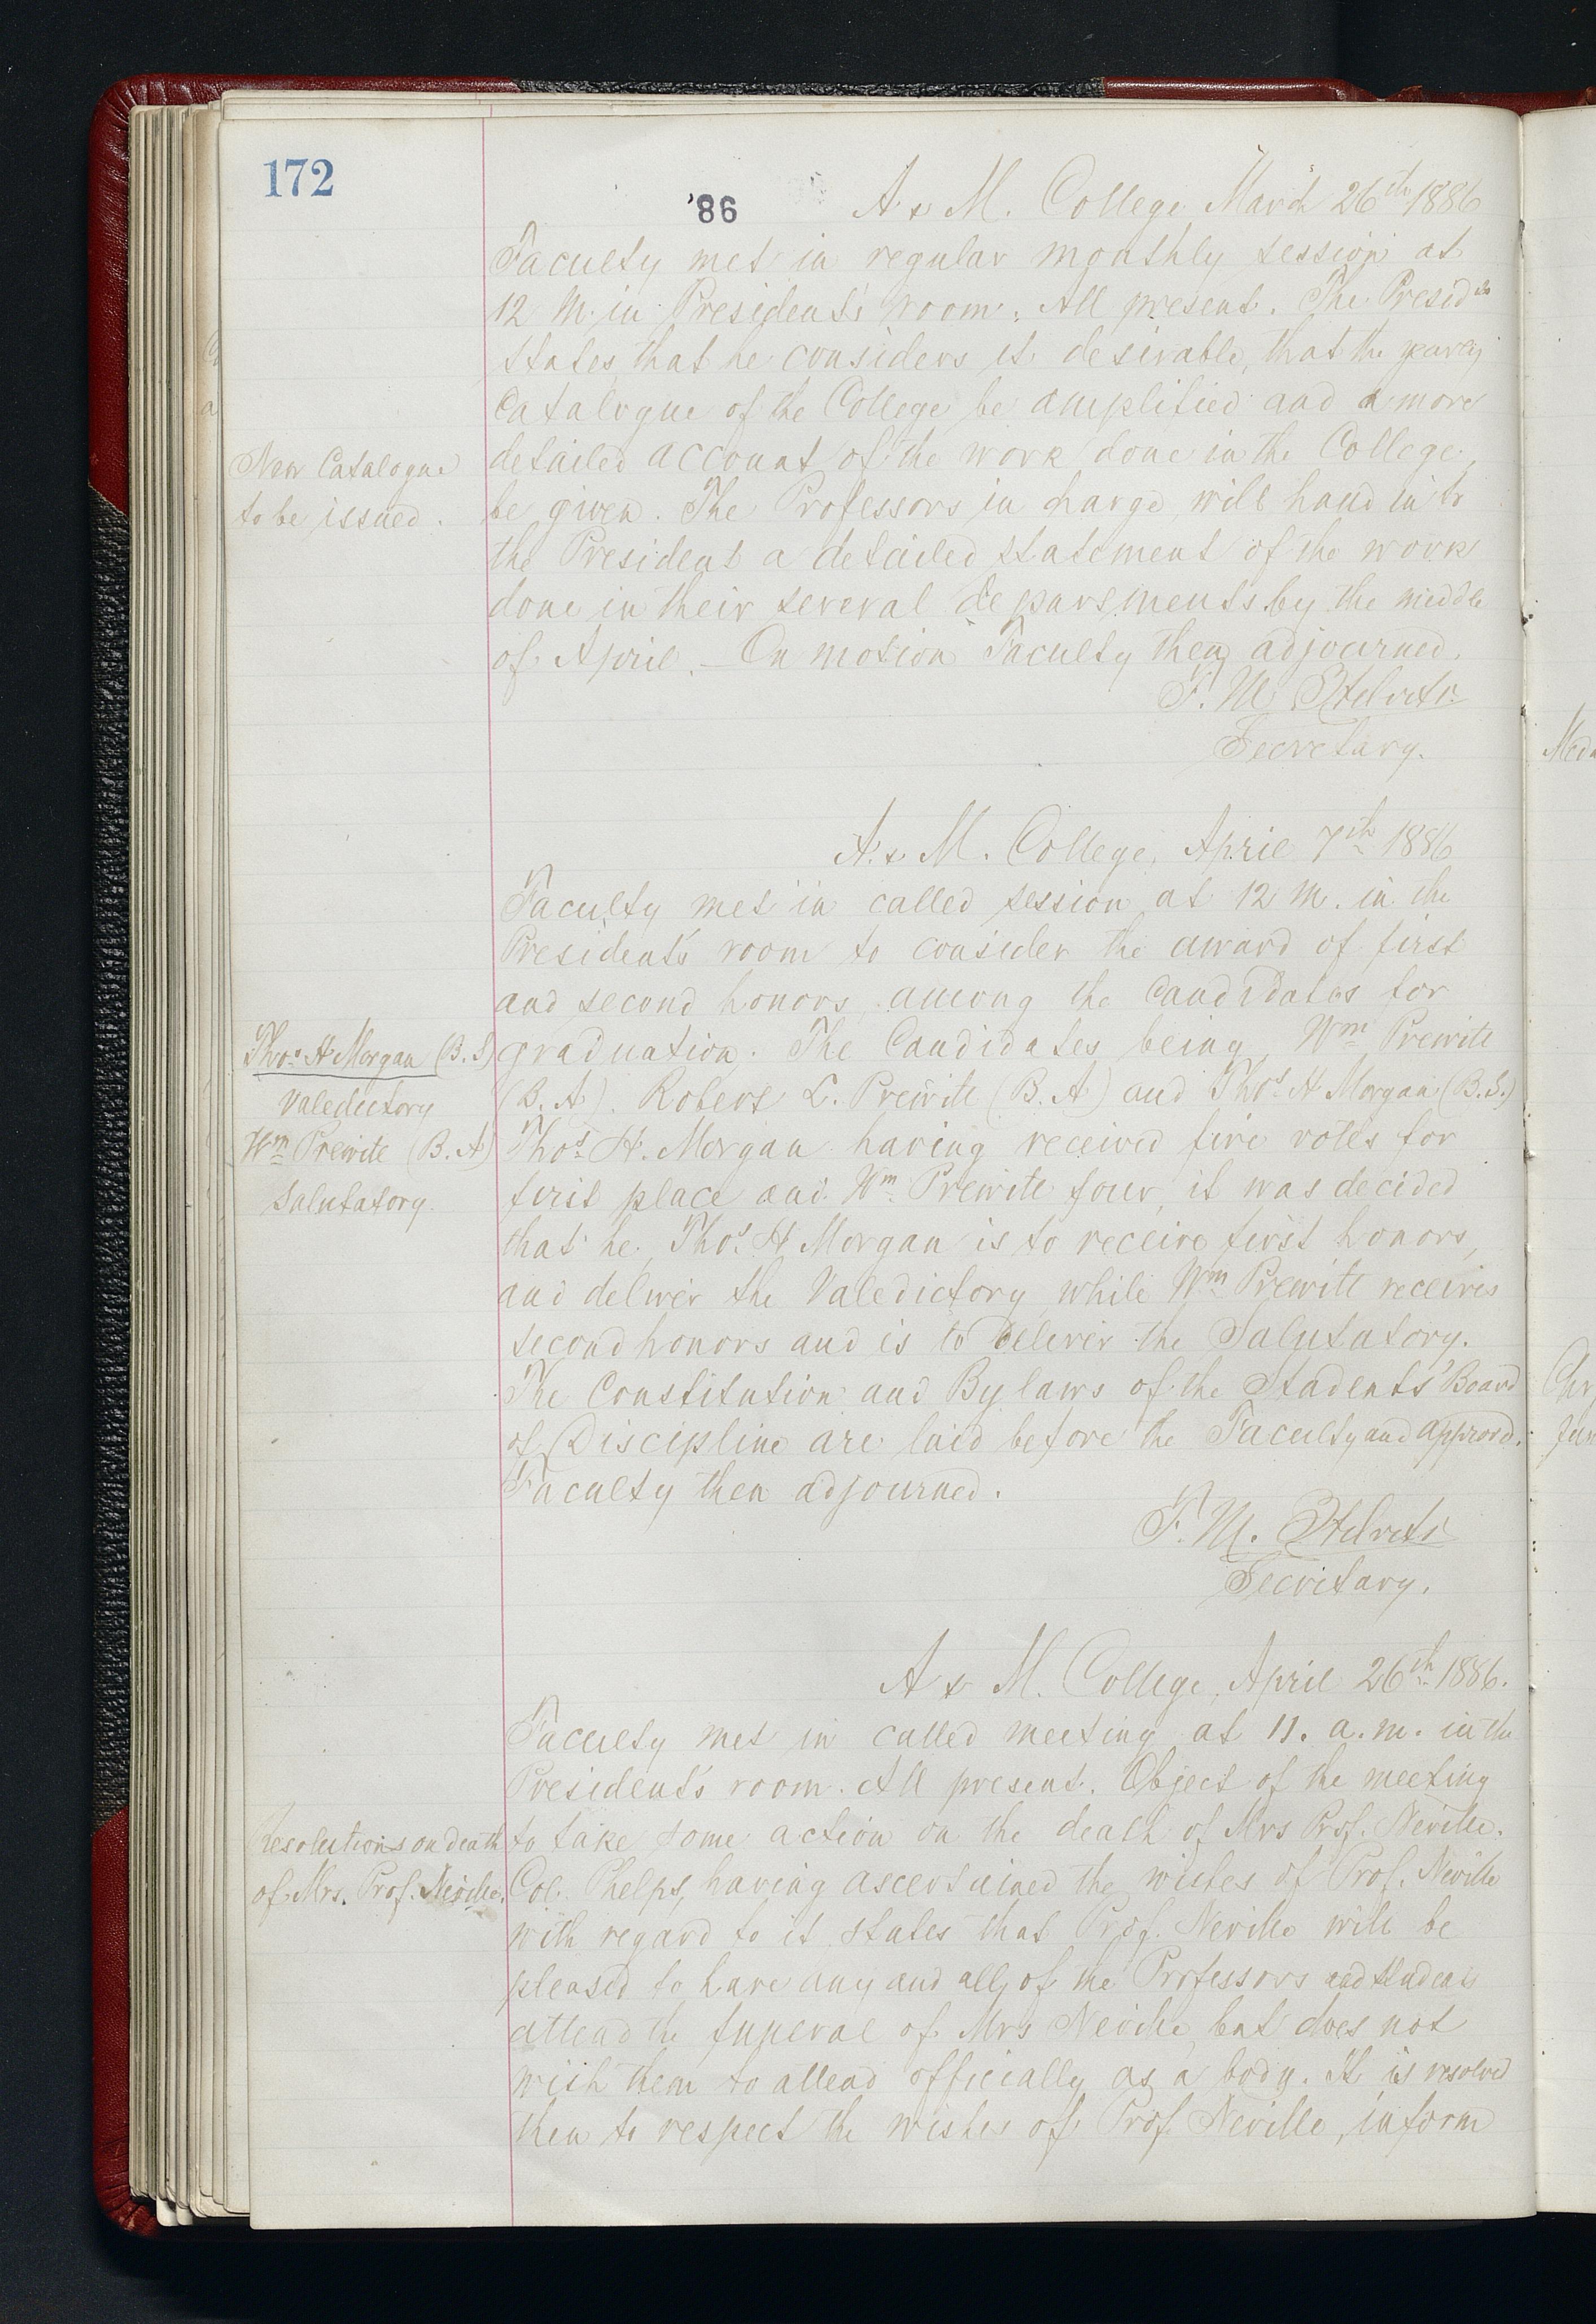 172
'86
A & M. College March 26th 1886
Faculty met in regular monthly session at
12 M. in President's room. All present. The Presid
states, that he considers it desirable, that the yearly
Catalogue of the College be amplified and a more
New Catalogue
to be issued.
detailed account of the work done in the College,
be given. The Professors in charge, will hand in to
the President a detailed statement of the work
done in their several departments by the middle
of April. — On motion Faculty then adjourned.
F. M. Helveti
Secretary.
A. & M. College, April 7th 1886
Faculty met in called session at 12 M. in the
President's room to consider the award of first
and second honors, among the Candidates for
Thos. H Morgan (B.S)
Valedictory
Wm Prewitt (B.A)
Salutatory.
graduation. The Candidates being, Wm Prewitt
(B.A). Robert L. Prewitt (B.A) and Thos. H Morgan (B.S.)
Thos. H. Morgan having received five votes for
first place and Wm Prewitt four, it was decided
that he, Thos. H Morgan is to receive first honors,
and deliver the Valedictory while Wm Prewitt receives
second honors and is to deliver the Salutatory.
The Constitution and By laws of the Students' Board
of Discipline are laid before the Faculty and approved.
Faculty then adjourned.
F. M. Helveti
Secretary.
A & M. College, April 26th 1886.
Faculty met in called meeting at 11. a.m. in the
President's room. All present. Object of the meeting
Resolutions on death
of Mrs. Prof. Neville.
to take some action on the death of Mrs Prof. Neville.
Col. Phelps, having ascertained the wishes of Prof. Neville
with regard to it, states that Prof. Neville will be
pleased to have any and all of the Professors and students
attend the funeral of Mrs Neville, but does not
wish them to attend officially as a body. It is resolved
then to respect the wishes of Prof. Neville, inform